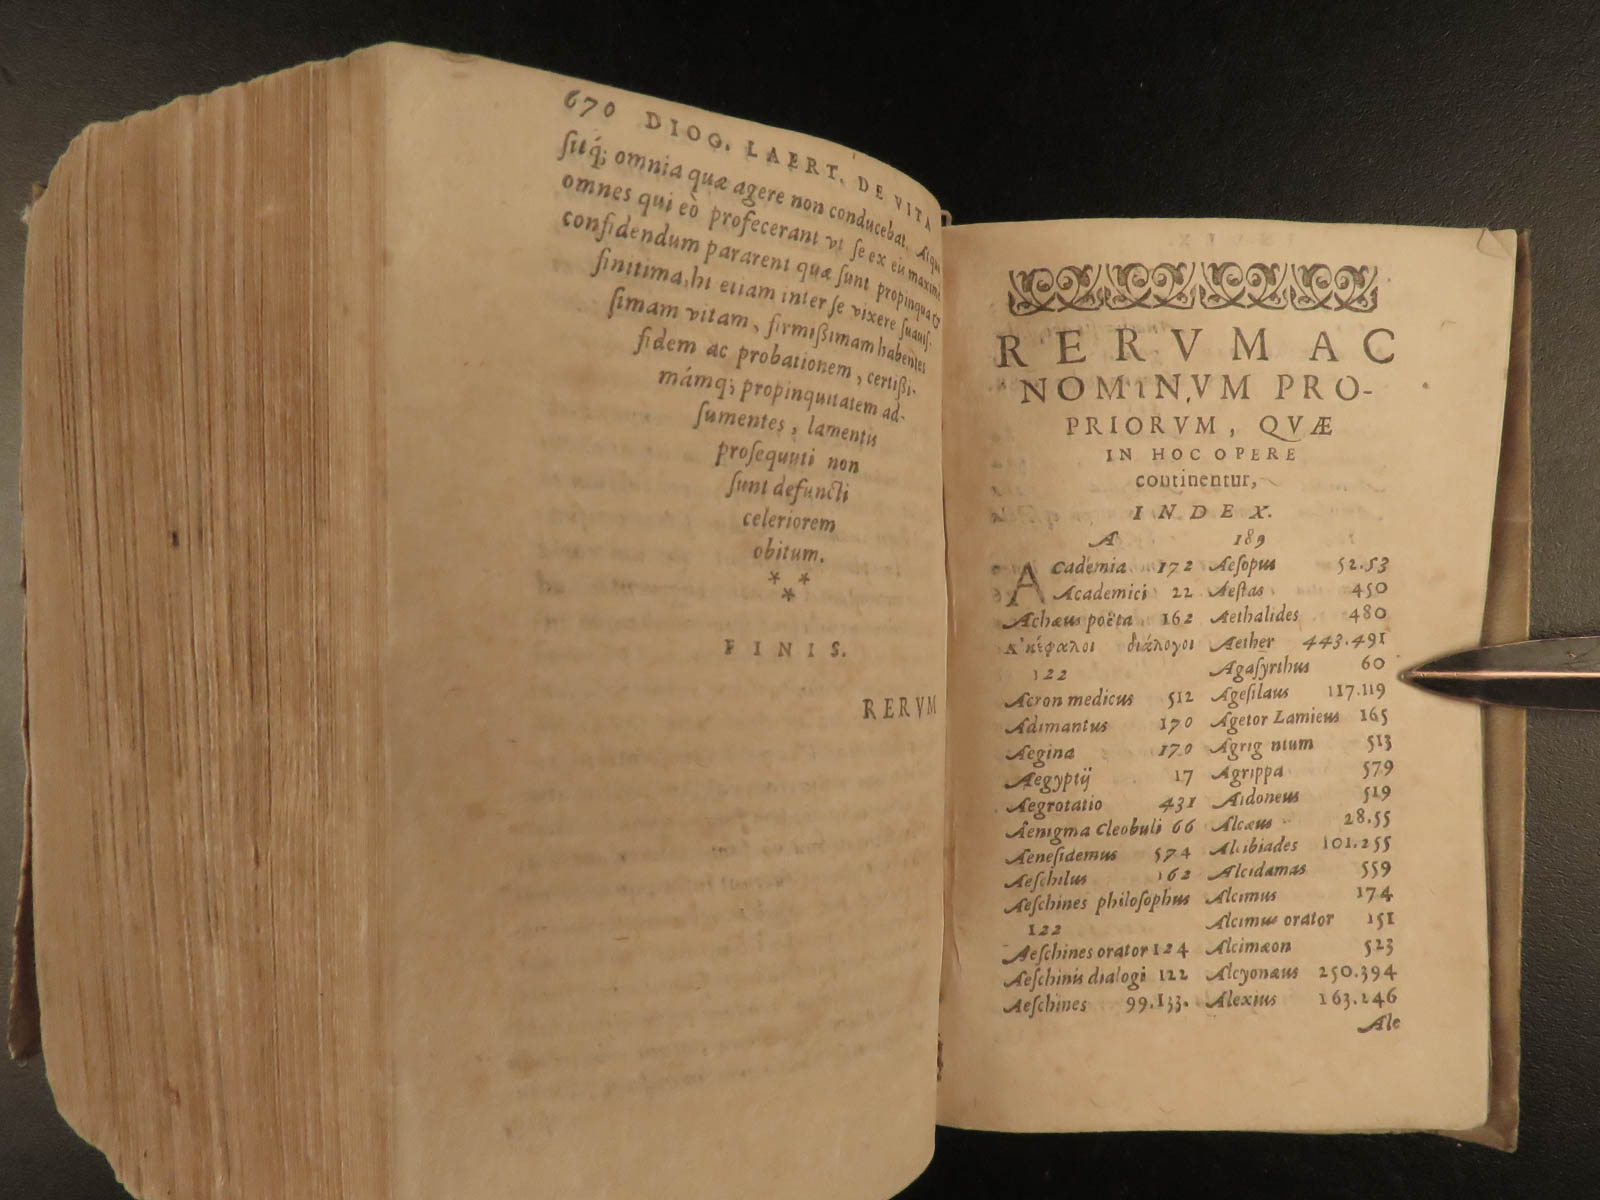 670 DIOG. LAERT. DE VITA
ſitq́; omnia quæ agere non conducebat. Atqui
omnes qui eò profecerant vt ſe ex eis maximè
confidendum pararent quæ ſunt propinqua &
finitima, hi etiam inter ſe vixere ſuauiſ-
ſimam vitam, firmißimam habentes
fidem ac probationem, certißi-
mámq; propinquitatem ad-
ſumentes, lamentis
proſequuti non
ſunt defuncti
celeriorem
obitum.
* *
*
FINIS.
RERVM
RERVM AC
NOMINVM PRO-
PRIORVM, QVÆ
IN HOC OPERE
continentur,
INDEX.
A
Academia 172
Academici 22
Achæus poëta 162
Ἀκέφαλοι διάλογοι
122
Acron medicus 512
Adimantus 170
Aegina 170
Aegyptij 17
Aegrotatio 431
Aenigma Cleobuli 66
Aeneſidemus 574
Aeſchilus 162
Aeſchines philoſophus
122
Aeſchines orator 124
Aeſchinis dialogi 122
Aeſchines 99.133.
189
Aeſopus 52.53
Aeſtas 450
Aethalides 480
Aether 443.491
Agaſyrthus 60
Ageſilaus 117.119
Agetor Lamieus 165
Agrig ntum 513
Agrippa 579
Aidoneus 519
Alcæus 28.55
Alcibiades 101.255
Alcidamas 559
Alcimus 174
Alcimus orator 151
Alcimæon 523
Alcyonæus 250.394
Alexius 163.246
Ale